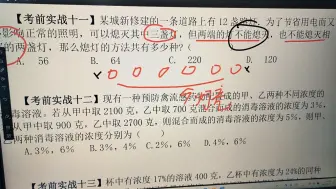 【考前实战十一】某城新修建的一条道路上有12盏路灯，为了节省用电而又
影响正常的照明，可以熄灭其中三盏灯，但两端的灯不能熄灭，也不能熄灭相
的两盏灯，那么熄灯的方法共有多少种？（
A. 56 B. 64 C. 220 D. 120
【考前实战十二】现有一种预防禽流感
配成的甲、乙两种不同浓度的
毒溶液。若从甲中取2100克，乙中取700克混合而成的消毒溶液的浓度为3%，
从甲中取900克，乙中取2700克，则混合而成的消毒溶液的浓度为5%，则甲、
两种消毒溶液的浓度分别为（
A. 3%，6% B. 3%，4% C. 2%，6% D. 4%，6%
【考前实战十三】杯中有浓度17%的溶液400克，乙杯中有浓度为24%的同种